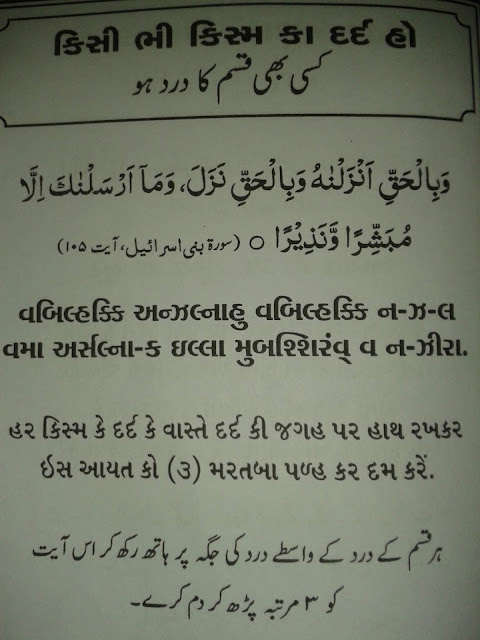 કિસી ભી કિસ્મ કા દર્દ હો
کسی بھی قسم کا درد ہو
وَبِالْحَقِّ اَنْزَلْنٰهُ وَبِالْحَقِّ نَزَلَ، وَمَآ اَرْسَلْنٰكَ اِلَّا
مُبَشِّرًا وَّنَذِيْرًا ○ (سورۃ بنی اسرائیل، آیت ۱۰۵)
વબિલ્હક્કિ અન્ઝલ્નાહુ વબિલ્હક્કિ ન-ઝ-લ
વમા અર્સલ્ના-ક ઇલ્લા મુબશ્શિરંવ્ વ ન-ઝીરા.
હર કિસ્મ કે દર્દ કે વાસ્તે દર્દ કી જગહ પર હાથ રખકર
ઇસ આયત કો (૩) મરતબા પળ્હ કર દમ કરેં.
ہر قسم کے درد کے واسطے درد کی جگہ پر ہاتھ رکھ کر اس آیت
کو ۳ مرتبہ پڑھ کر دم کرے۔